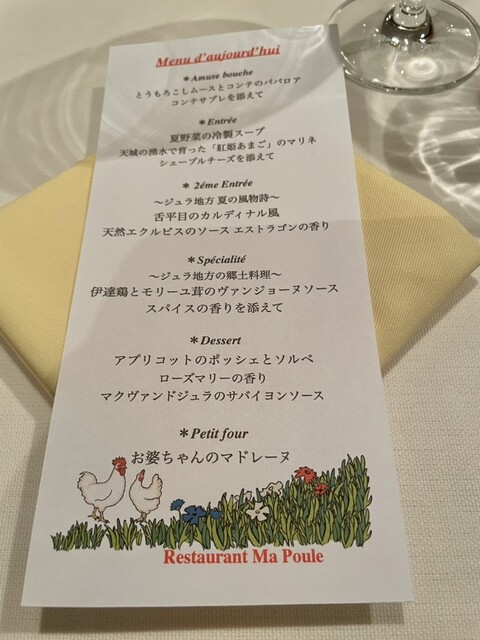 Menu d'aujourd'hui
＊Amuse bouche
とうもろこしムースとコンテのババロア
コンテサブレを添えて
＊Entrée
夏野菜の冷製スープ
天城の湧水で育った「紅姫あまご」のマリネ
シェーブルチーズを添えて
＊2éme Entrée
～ジュラ地方 夏の風物詩～
舌平目のカルディナル風
天然エクルビスのソース エストラゴンの香り
＊Spécialité
～ジュラ地方の郷土料理～
伊達鶏とモリーユ茸のヴァンジョーヌソース
スパイスの香りを添えて
＊Dessert
アプリコットのポッシェとソルベ
ローズマリーの香り
マクヴァンドジュラのサバイヨンソース
＊Petit four
お婆ちゃんのマドレーヌ
Restaurant Ma Poule